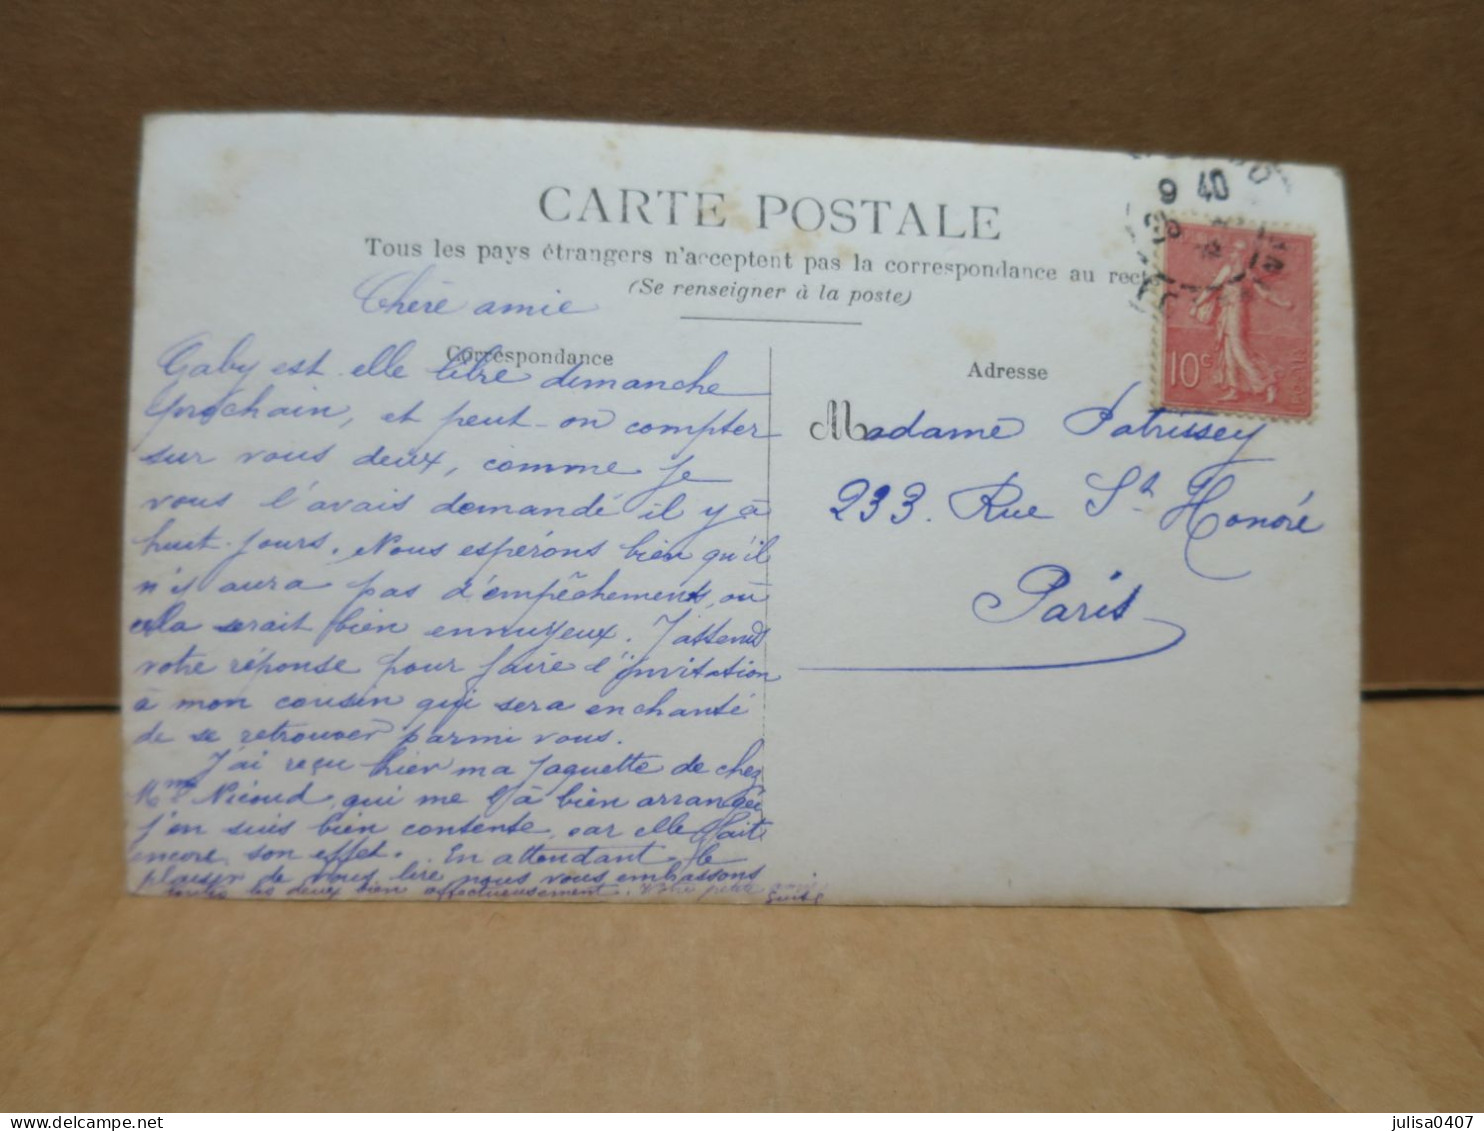 CARTE POSTALE
Tous les pays étrangers n'acceptent pas la correspondance au rect
(Se renseigner à la poste)
9 40
10c
Correspondance
Adresse
Chère amie
Gaby est elle libre dimanche
prochain, et peut-on compter
sur vous deux, comme je
vous l'avais demandé il y à
huit jours. Nous espérons bien qu'il
n'y aura pas d'empêchements, où
cela serait bien ennuyeux. J'attends
votre réponse pour faire l'invitation
à mon cousin qui sera enchanté
de se retrouver parmi vous.
J'ai reçu hier ma jaquette de chez
Mme Nicoud, qui me l'à bien arrangée
j'en suis bien contente, car elle fait
encore son effet. En attendant le
plaisir de vous lire nous vous embrassons
toutes les deux bien affectueusement. Votre petite amie
Madame Patrissey
233. Rue St Honoré
Paris
julisa0407